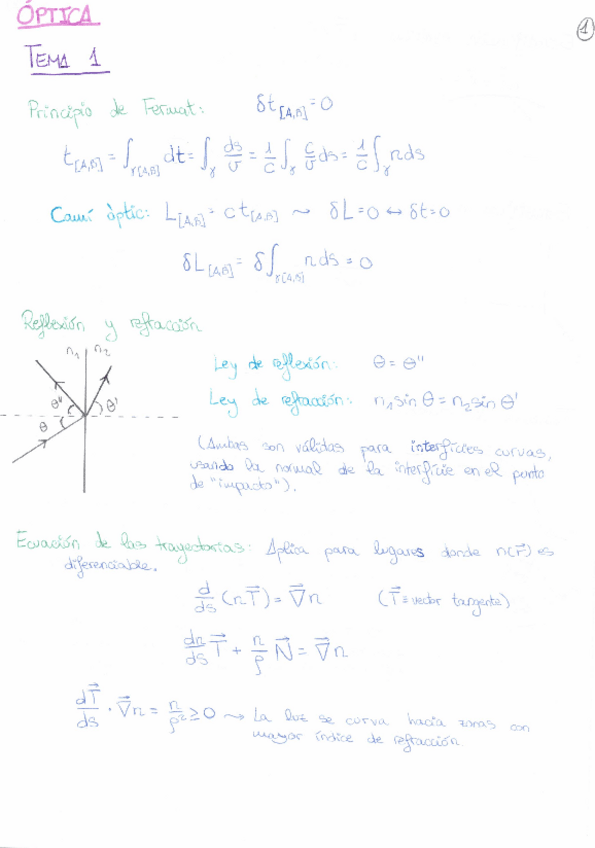 ÓPTICA
1
TEMA 1
Principio de Fermat: δt[A,B] = 0
t[A,B] = ∫γ[A,B] dt = ∫γ ds/v = 1/c ∫γ c/v ds = 1/c ∫γ n ds
Camí òptic: L[A,B] = c t[A,B] ~ δL = 0 ↔ δt = 0
δL[A,B] = δ∫γ[A,B] n ds = 0
Reflexión y refracción
n₁ n₂
θ'' θ'
θ
Ley de reflexión: θ = θ''
Ley de refracción: n₁ sin θ = n₂ sin θ'
(Ambas son válidas para interfícies curvas,
usando la normal de la interfície en el punto
de "impacto").
Ecuación de las trayectorias: Aplica para lugares donde n(r⃗) es
diferenciable.
d/ds (nT⃗) = ∇⃗n (T⃗ = vector tangente)
dn/ds T⃗ + n/ρ N⃗ = ∇⃗n
dT⃗/ds · ∇⃗n = n/ρ² ≥ 0 ⤳ La luz se curva hacia zonas con
mayor índice de refracción